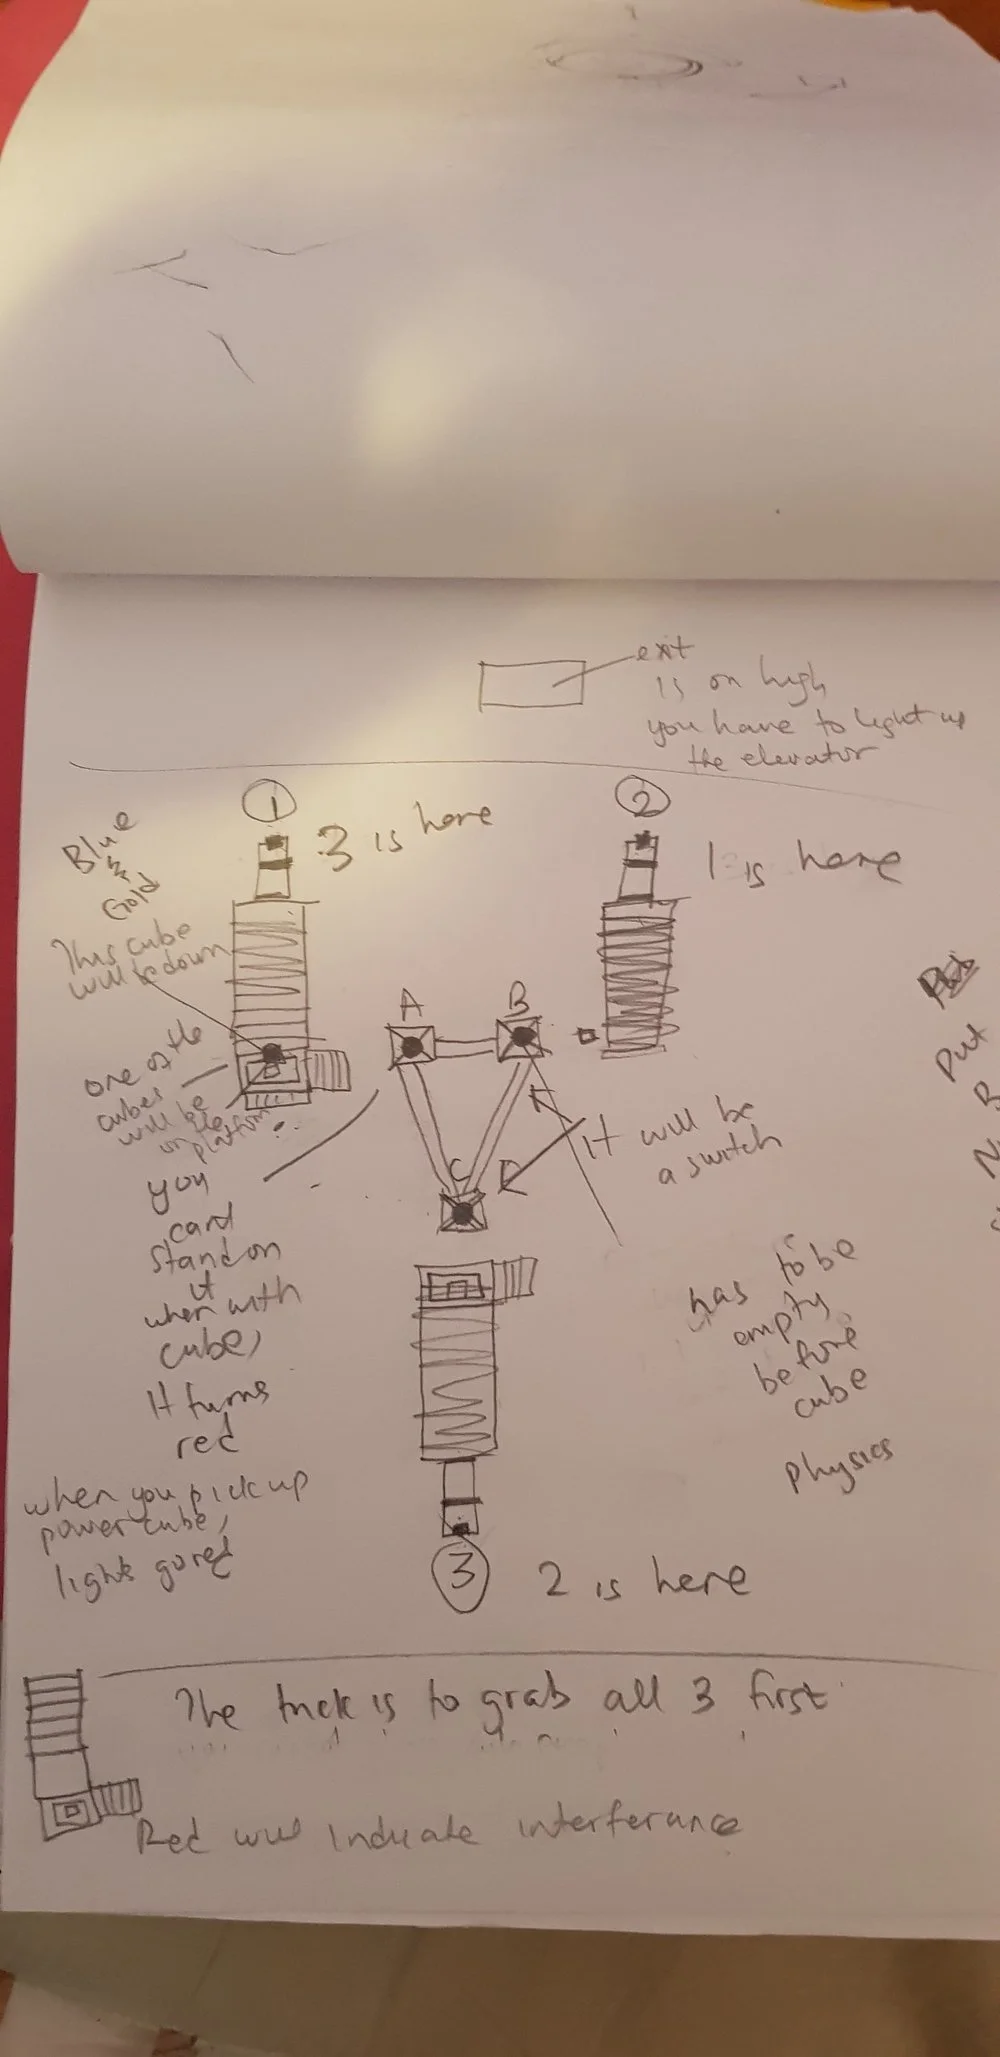 exit
is on high
you have to light up
the elevator
1
3 is here
2
1 is here
Blue
&
Gold
This cube
will be down
A
B
C
one of the
cubes
will be
on the
platform
you
cant
stand on
it
when with
cube,
It turns
red
when you pick up
power cube,
lights go red
It will be
a switch
has to be
empty
before
cube
physics
Put
3
2 is here
The trick is to grab all 3 first
Red will indicate interferance